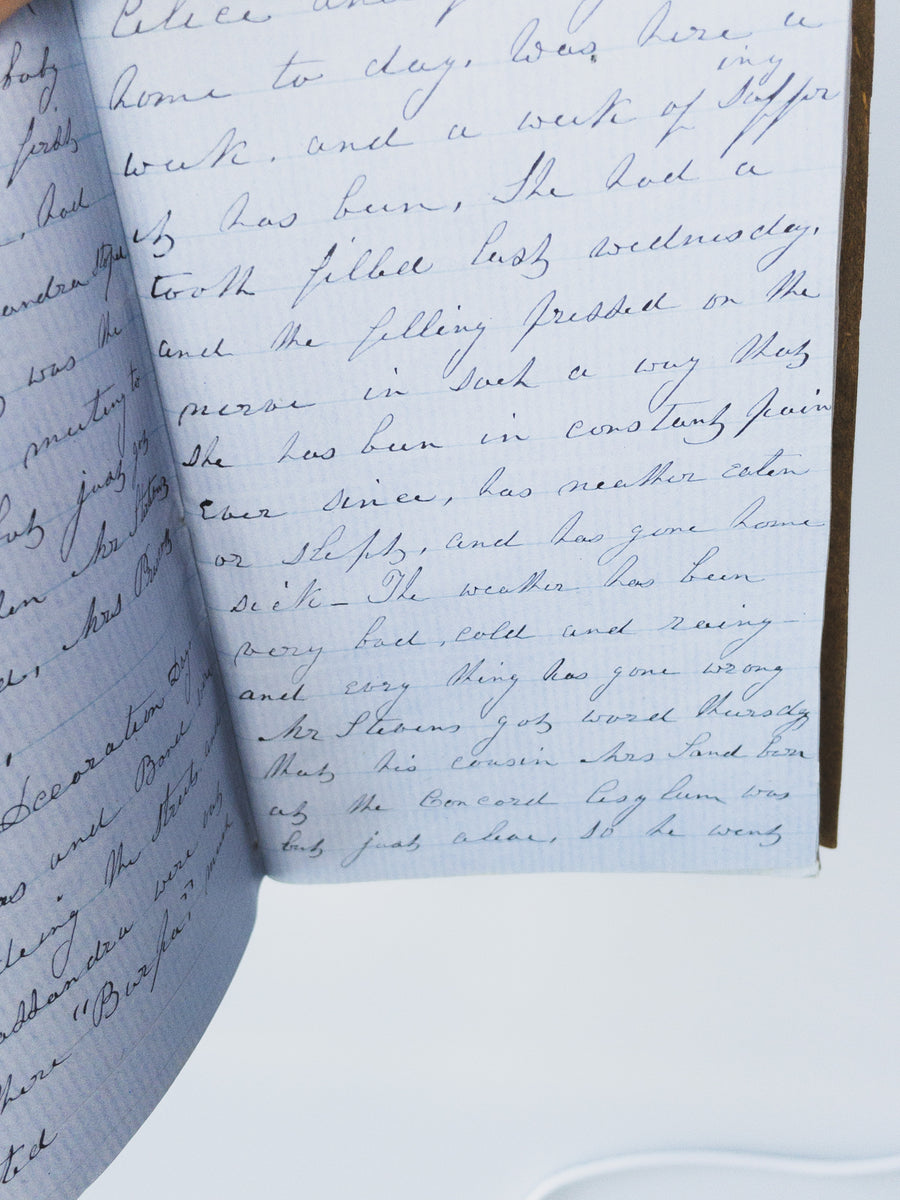 baby
first
, had
andra Stopd
was the
meeting to
but just got
Mr Stevens
d, Mrs
Decoration Day
as and Band
ing the streets and
assandra were
there "Burpa"
ted
home to day. Was here a
week. and a week of suffering
it has been, She had a
tooth filled last wednesday,
and the filling pressed on the
nerve in such a way that
she has been in constant pain
Ever since, has neather eaten
or slept, and has gone home
sick - The weather has been
very bad, cold and rainy -
and evry thing has gone wrong
Mr Stevens got word thursday
that his cousin Mrs Sand born
at the Concord Asylum was
but just alive, so he went